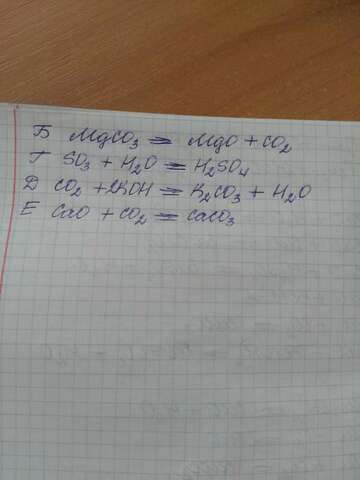 Б MgCO₃ = MgO + CO₂
Г SO₃ + H₂O = H₂SO₄
Д CO₂ + 2KOH = K₂CO₃ + H₂O
Е CaO + CO₂ = CaCO₃